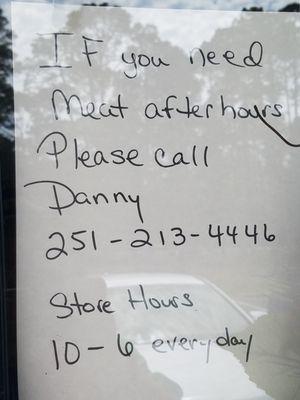 IF you need
Meat after hours
Please call
Danny
251-213-4446
Store Hours
10-6 everyday